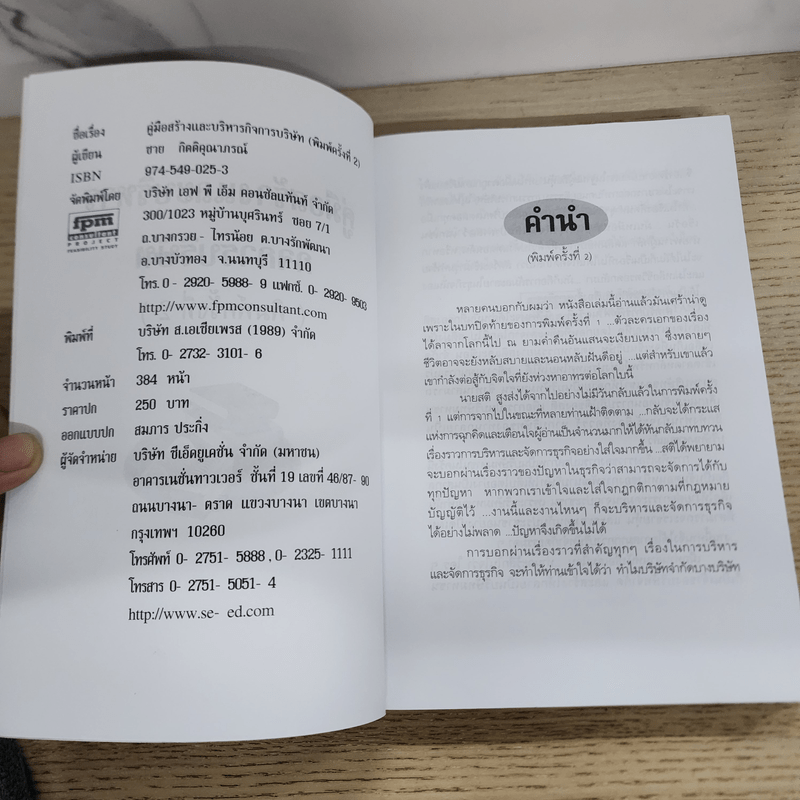 ชื่อเรื่อง คู่มือสร้างและบริหารกิจการบริษัท (พิมพ์ครั้งที่ 2)
ผู้เขียน ชาย กิตติคุณาภรณ์
ISBN 974-549-025-3
จัดพิมพ์โดย บริษัท เอฟ พี เอ็ม คอนซัลแท้นท์ จำกัด
fpm
consultant
PROJECT
FEASIBILITY STUDY
300/1023 หมู่บ้านบุศรินทร์ ซอย 7/1
ถ.บางกรวย - ไทรน้อย ต.บางรักพัฒนา
อ.บางบัวทอง จ.นนทบุรี 11110
โทร. 0- 2920- 5988- 9 แฟกซ์. 0- 2920- 9503
http://www.fpmconsultant.com
พิมพ์ที่ บริษัท ส.เอเซียเพรส (1989) จำกัด
โทร. 0- 2732- 3101- 6
จำนวนหน้า 384 หน้า
ราคาปก 250 บาท
ออกแบบปก สมภาร ประกิ่ง
ผู้จัดจำหน่าย บริษัท ซีเอ็ดยูเคชั่น จำกัด (มหาชน)
อาคารเนชั่นทาวเวอร์ ชั้นที่ 19 เลขที่ 46/87- 90
ถนนบางนา- ตราด แขวงบางนา เขตบางนา
กรุงเทพฯ 10260
โทรศัพท์ 0- 2751- 5888 , 0- 2325- 1111
โทรสาร 0- 2751- 5051- 4
http://www.se- ed.com
คำนำ
(พิมพ์ครั้งที่ 2)
หลายคนบอกกับผมว่า หนังสือเล่มนี้อ่านแล้วมันเศร้าน่าดู
เพราะในบทปิดท้ายของการพิมพ์ครั้งที่ 1 ...ตัวละครเอกของเรื่อง
ได้ลาจากโลกนี้ไป ณ ยามค่ำคืนอันแสนจะเงียบเหงา ซึ่งหลายๆ
ชีวิตอาจจะยังหลับสบายและนอนหลับฝันดีอยู่ ...แต่สำหรับเขาแล้ว
เขากำลังต่อสู้กับจิตใจที่ยังห่วงหาอาทรต่อโลกใบนี้
นายสติ สูงส่งได้จากไปอย่างไม่มีวันกลับแล้วในการพิมพ์ครั้ง
ที่ 1 แต่การจากไปในขณะที่หลายท่านเฝ้าติดตาม ...กลับจะได้กระแส
แห่งการฉุกคิดและเตือนใจผู้อ่านเป็นจำนวนมากให้ได้หันกลับมาทบทวน
เรื่องราวการบริหารและจัดการธุรกิจอย่างใส่ใจมากขึ้น ...สติได้พยายาม
จะบอกผ่านเรื่องราวของปัญหาในธุรกิจว่าสามารถจะจัดการได้กับ
ทุกปัญหา หากพวกเราเข้าใจและใส่ใจกฎกติกาตามที่กฎหมาย
บัญญัติไว้ ...งานนี้และงานไหนๆ ก็จะบริหารและจัดการธุรกิจ
ได้อย่างไม่พลาด ...ปัญหาจึงเกิดขึ้นไม่ได้
การบอกผ่านเรื่องราวที่สำคัญทุกๆ เรื่องในการบริหาร
และจัดการธุรกิจ จะทำให้ท่านเข้าใจได้ว่า ทำไมบริษัทจำกัดบางบริษัท